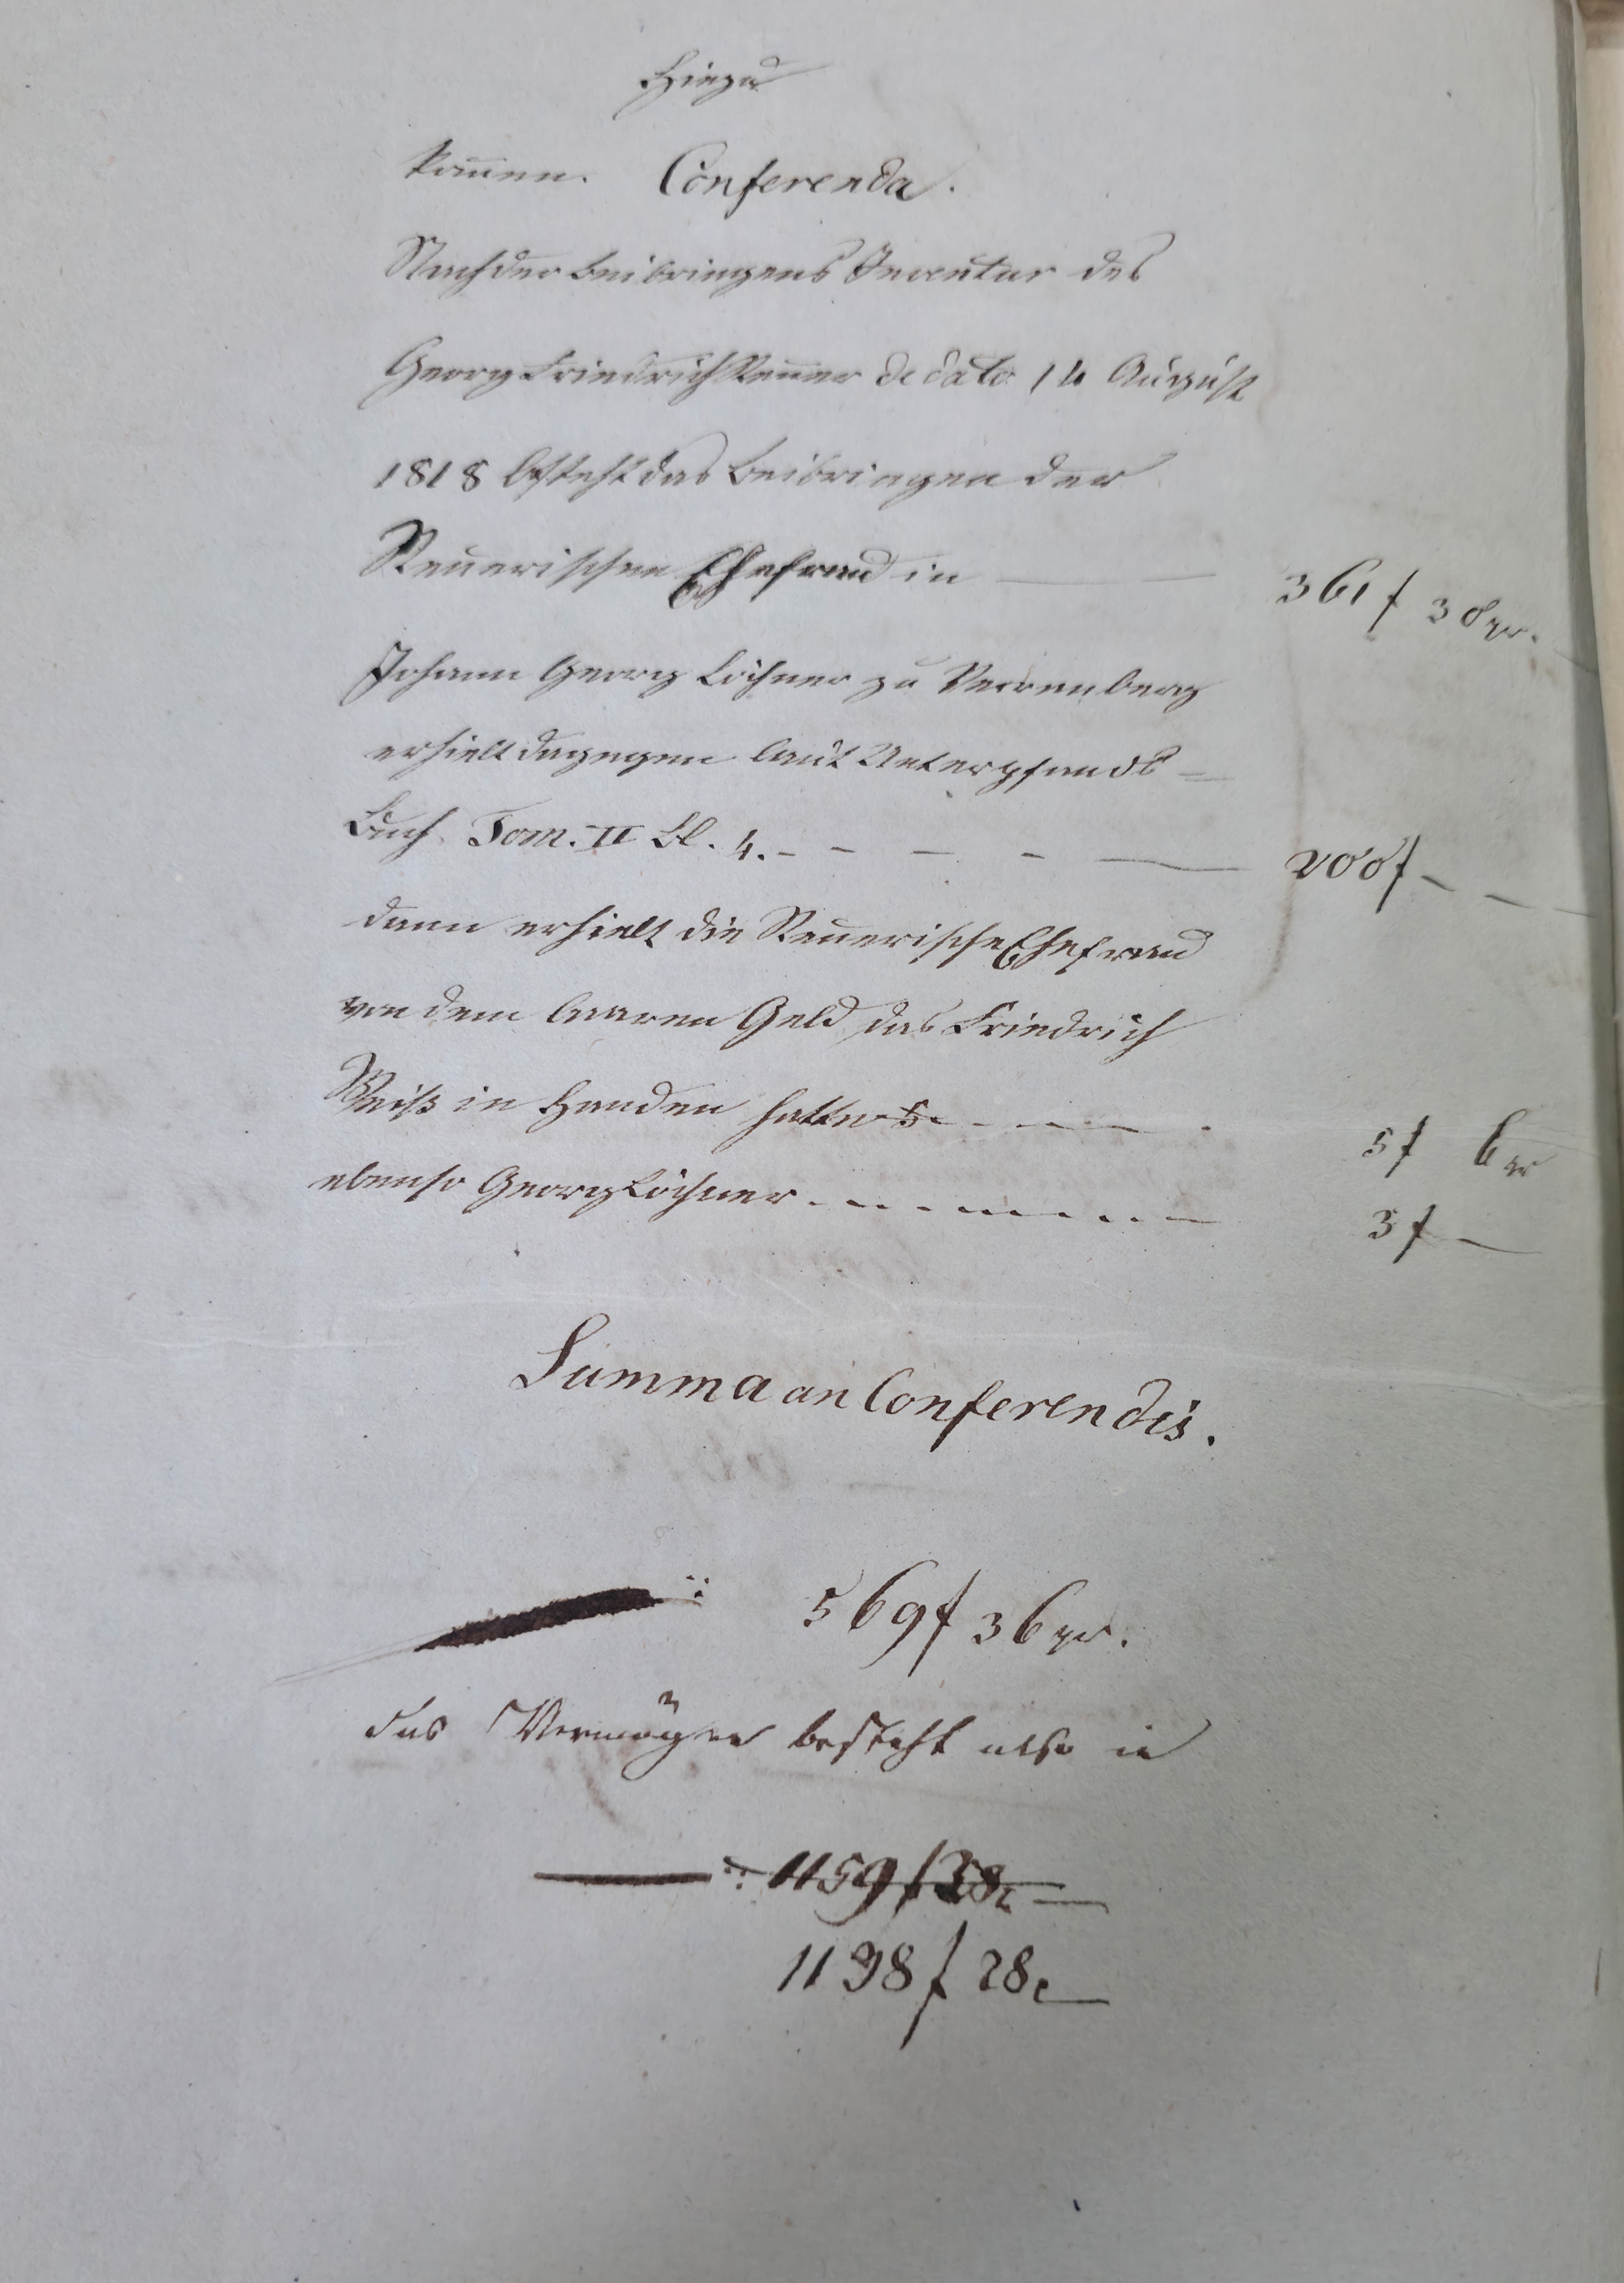 Hiezu
kom̄en. Conferenda.
Nach der Beibringens Inventur des
Georg Friedrich Reuer de dato 14 August
1818 besteht das Beibringen der
Reuerischen Ehefrau in — 361 f 30 xr.
Johann Georg Löchner zu Verrenberg
erhielt dagegen laut Unterpfands=
Buch Tom. II Bl. 4. - - - - — 200 f - - -
dann erhielt die Reuerische Ehefrau
von dem baaren Geld das Friedrich
Weiß in Handen hatte - - - 5 f 6 xr
ebenso Georg Löchner - - - - - 3 f —
Summa an Conferendis.
569 f 36 xr.
das Vermögen besteht also in
1159 f 28 x
1198 f 28 x